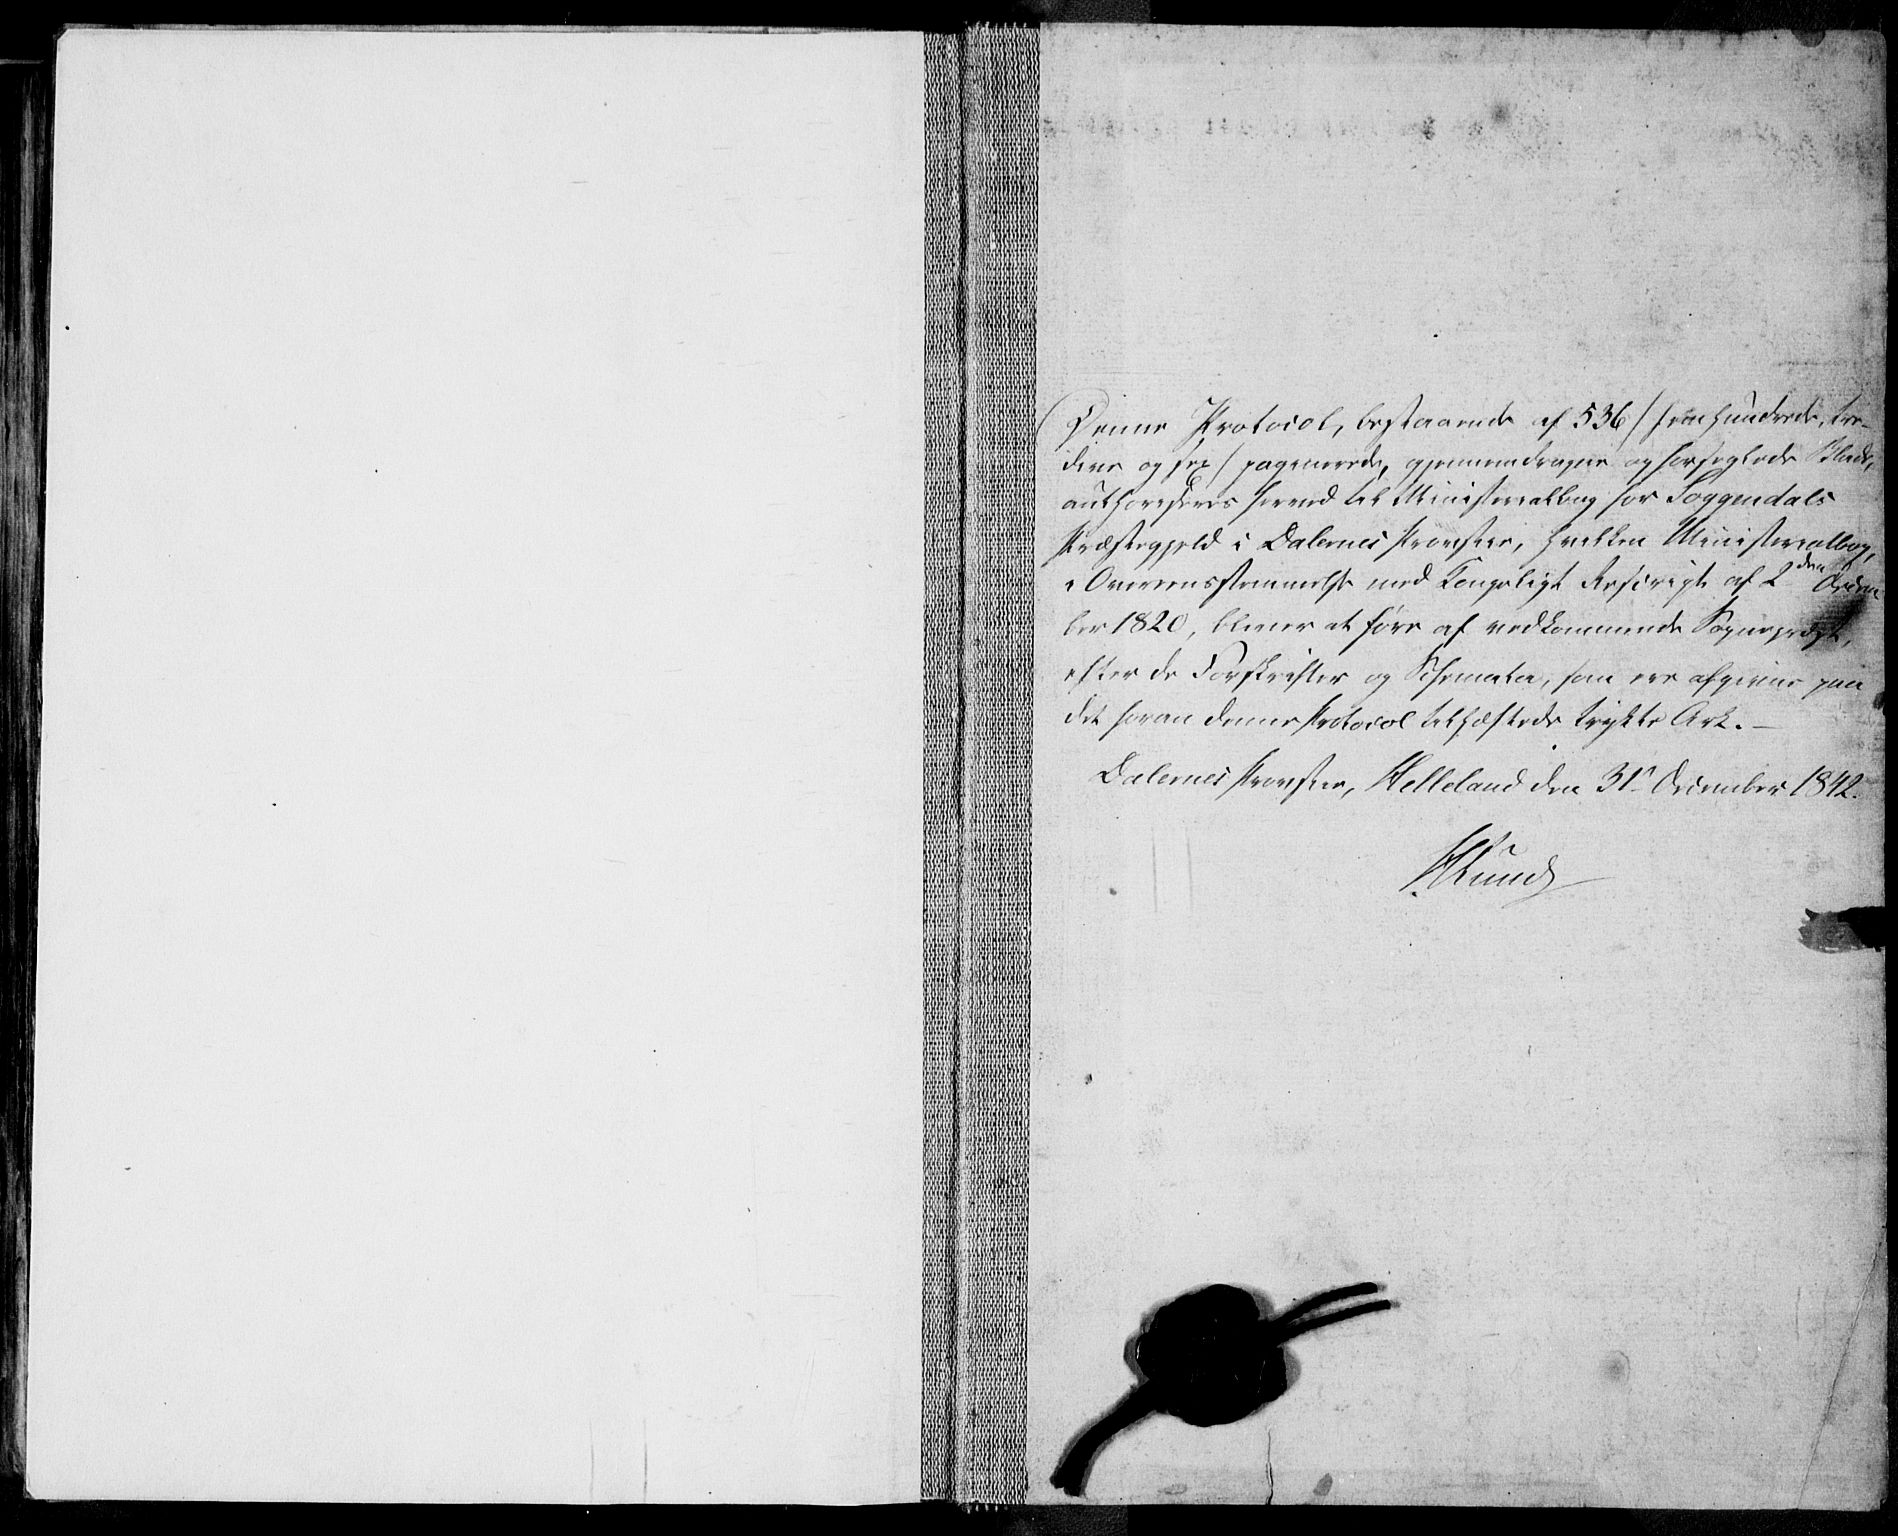 Denne Protocol, bestaaende af 536 / fem hundrede, tre-
dive og sex / paginerede, gjennemdragne og forseglede Blade,
authoriseres herved til Ministerialbog for Soggendals
Præstegjeld i Dalernes Provstie, hvilken Ministerialbog,
i Overeensstemmelse med Kongeligt Rescript af 2den Decem-
ber 1820, bliver at føre af vedkommende Sognepræst,
efter de Forskrifter og Schemata, som ere afgivne paa
det foran denne Protocol tilhæftede trykte Ark. –
Dalernes Provstie, Helleland den 31te December 1842.